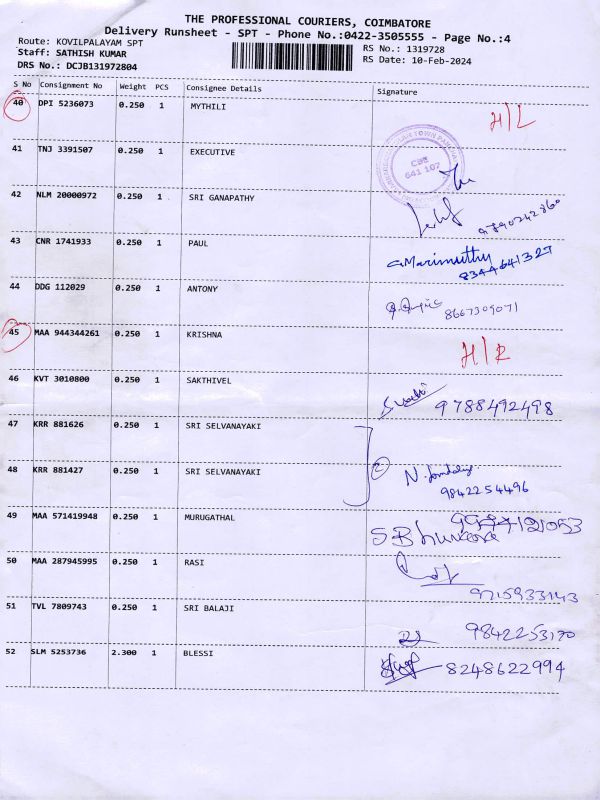 THE PROFESSIONAL COURIERS, COIMBATORE
Delivery Runsheet - SPT - Phone No.:0422-3505555 - Page No.:4
Route: KOVILPALAYAM SPT
Staff: SATHISH KUMAR
DRS No.: DCJB131972804
RS No.: 1319728
RS Date: 10-Feb-2024
S No Consignment No Weight PCS Consignee Details Signature
40 DPI 5236073 0.250 1 MYTHILI H/L
41 TNJ 3391507 0.250 1 EXECUTIVE
CBE
641 107
42 NLM 20000972 0.250 1 SRI GANAPATHY 9790242860
43 CNR 1741933 0.250 1 PAUL C.Marimuthy
8344641327
44 DDG 112029 0.250 1 ANTONY 8667309071
45 MAA 944344261 0.250 1 KRISHNA H/R
46 KVT 3010800 0.250 1 SAKTHIVEL 9788492498
47 KRR 881626 0.250 1 SRI SELVANAYAKI
2
48 KRR 881427 0.250 1 SRI SELVANAYAKI N.
9842254496
49 MAA 571419948 0.250 1 MURUGATHAL
50 MAA 287945995 0.250 1 RASI
9715933143
51 TVL 7809743 0.250 1 SRI BALAJI 9842253170
52 SLM 5253736 2.300 1 BLESSI 8248622994